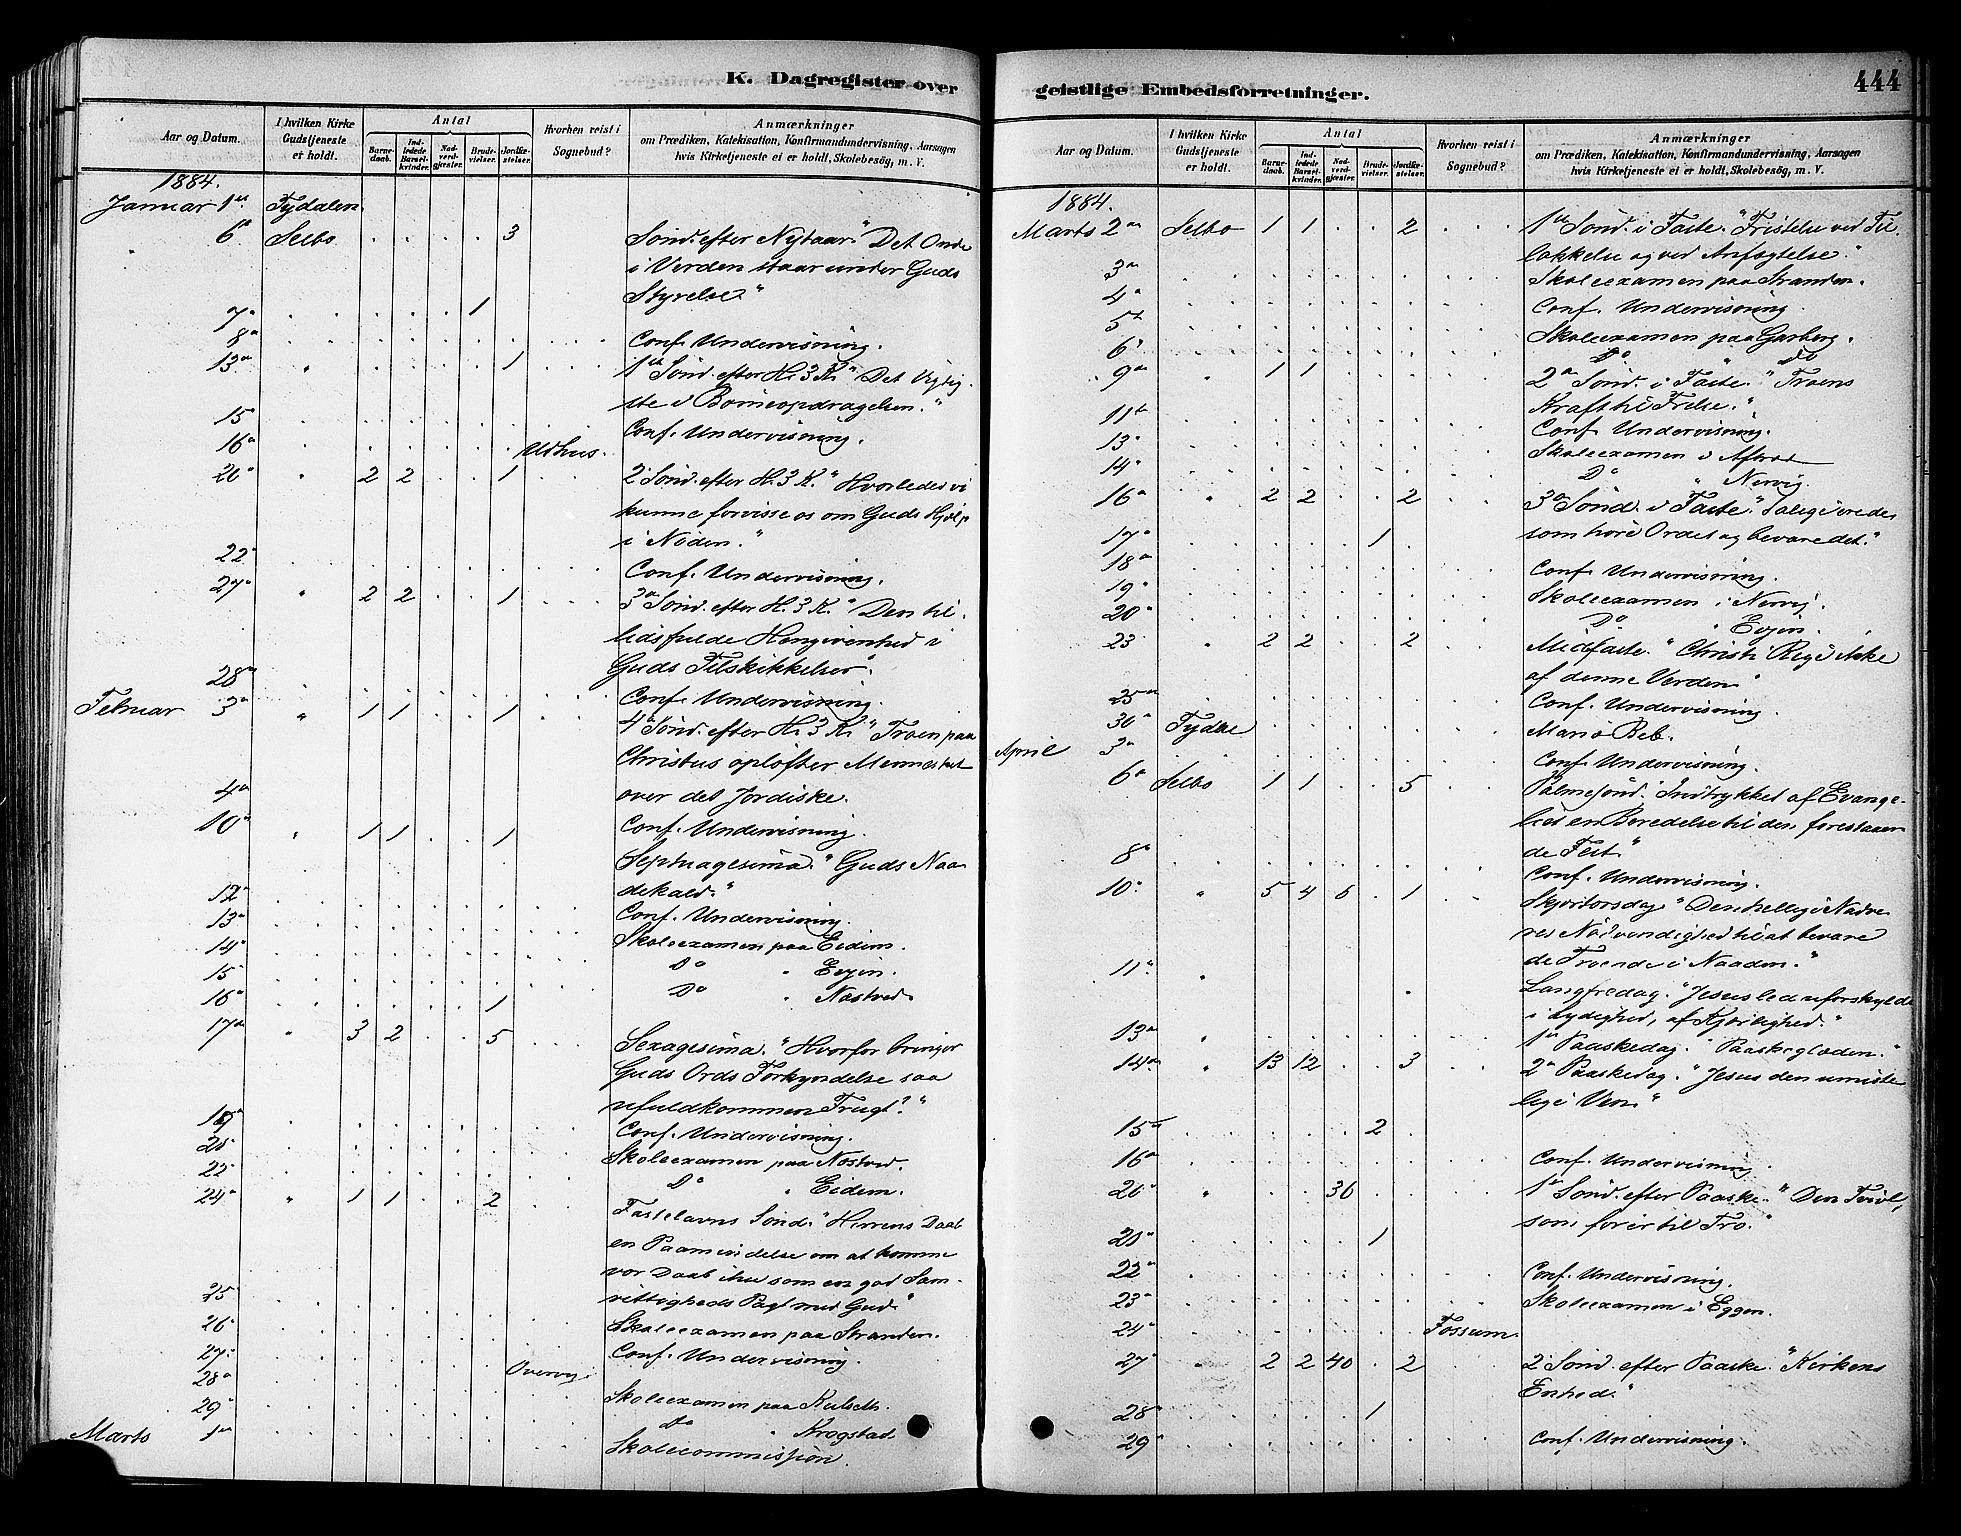 K. Dagregister over
Aar og Datum.
I hvilken Kirke Gudstjeneste er holdt.
Antal
Barnedaab.
Indledede Barselkvinder.
Nadverdgjæster.
Brudevielser.
Jordfæstelser.
Hvorhen reist i Sognebud?
Anmærkninger
om Prædiken, Katekisation, Konfirmandundervisning, Aarsagen
hvis Kirketjeneste ei er holdt, Skolebesög, m. V.
1884.
Januar 1ste Tydalen.
6te Selbo 3 Sönd. efter Nytaar. "Det Onde
i Verden staar under Guds
Styrelse"
7de 1
8de Conf. Undervisning.
13de " 1 1ste Sönd. efter H. 3 K. "Det Vigtig-
ste i Börneopdragelsen."
15de Conf. Undervisning.
16de Udhus.
20de " 2 2 1 2 Sönd. efter H. 3 K. "Hvorledes vi
kunne forvisse os om Guds Hjælp
i Nöden."
22de Conf. Undervisning.
27de " 2 2 1 3die Sönd. efter H. 3 K. "Den til-
lidsfulde Hengivenhed i
Guds Tilskikkelser".
28de Conf. Undervisning.
Februar 3die " 1 1 1 4de Sönd. efter H. 3 K. "Troen paa
Christus oplöfter Mennesket
over det Jordiske.
4de Conf. Undervisning.
10de " 1 1 1 Septuagesima. "Guds Naa-
dekald."
12te Conf. Undervisning.
13de Skoleexamen paa Eidem.
14de Do " Evjen.
15de Do " Nostved
16de 1
17de " 3 2 5 Sexagesima. "Hvorfor bringer
Guds Ords Forkyndelse saa
ufuldkommen Frugt?"
19de Conf. Undervisning.
20de Skoleexamen paa Nostved.
22de Do " Eidem.
24de " 1 1 2 Fastelavns Sönd. "Herrens Daab
en Paamindelse om at komme
vor Daab ihu som en god Sam-
vittigheds Pagt med Gud."
25 Skoleexamen paa Stranden.
26 Conf. Undervisning.
27de Overvig
28de Skoleexamen paa Kulseth.
29de Do " Krogstad.
Marts 1ste Skolecommission.
geistlige Embedsforretninger.
444
Aar og Datum.
I hvilken Kirke Gudstjeneste er holdt.
Antal
Barnedaab.
Indledede Barselkvinder.
Nadverdgjæster.
Brudevielser.
Jordfæstelser.
Hvorhen reist i Sognebud?
Anmærkninger
om Prædiken, Katekisation, Konfirmandundervisning, Aarsagen
hvis Kirketjeneste ei er holdt, Skolebesög, m. V.
1884.
Marts 2den Selbo 1 1 2 1ste Sönd. i Faste. "Fristelse ved Til-
lokkelse og ved Anfægtelse."
3die Skoleexamen paa Stranden.
4de Conf. Undervisning.
5te Skoleexamen paa Garberg.
6te Do " Do
9de " 1 1 2den Sönd. i Faste. "Troens
Kraft til Frelse."
11te Conf. Undervisning.
13de Skoleexamen i
14de Do " Nervig.
16de " 2 2 2 3die Sönd. i Faste. "Salige ere de
som höre Ordet og bevare det."
17de 1
18de Conf. Undervisning.
19de Skoleexamen i Nervig.
20de Do " Evjen.
23 " 2 2 2 Midfaste. "Christi Rige ikke
af denne Verden"
25de Conf. Undervisning.
30te Tydal Mariæ Beb.
April 3die Conf. Undervisning.
6te Selbo 1 1 5 Palmesönd. "Indtrykket af Evange-
liet en Beredelse til den forestaaen-
de Fest"
8de Conf. Undervisning.
10de " 5 4 6 1 Skjærtorsdag. "Den hellige Nadve-
res Nödvendighed til at bevare
de Troende i Naaden."
11te " Langfredag. "Jesus led uforskyldt
i Lydighed, af Kjærlighed."
13de " 1ste Paaskedag. "Paaskeglæden."
14de " 13 12 3 2den Paaskedag. "Jesus den umiste-
lige Ven"
15de 2
16de Conf. Undervisning.
20de " 36 1ste Sönd. efter Paaske. "Den Tvivl,
som förer til Tro."
20de 1
22de Conf. Undervisning.
23de Skoleexamen i Eggen.
24de Fossum.
27de " 2 2 40 2 2 Sönd. efter Paaske. "Kirkens
Enhed."
28de 1
29de Conf. Undervisning.